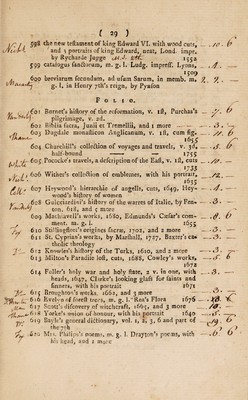 ( 29 )
598 the new testament of king Edward VI. with wood cuts,
and 3 portraits of king Edward, neat, Lond. impr.
by Rycharde Jugge
1552
599 catalogus sanctorum, m. g. l. Ludg. impress. Lyons,
1509
600 breviarum secundum, ad usum Sarum, in memb. m.
g. l. in Henry 7th's reign, by Pynson
FOLIO.
601 Burnet's history of the reformation, v. III, Purchas's
pilgrimage, v. 2d.
602 Biblia sacra, Junii et Tremellii, and 1 more
603 Dugdale monasticon Anglicanum, v. III, cum fig.
1655
604 Churchill's collection of voyages and travels, v. III,
half-bound
1755
605 Pococke's travels, a description of the East, v. III, cuts
1733
606 Wither's collection of emblemes, with his portrait,
607 Heywood's hierarchie of angells, cuts, 1649, Heywood's history of women
608 Guiccciardini's history of the warres of Italie, by Fenton, 618, and 2 more
609 Machiavell's works, 1680, Edmunds's Cæsar's comment. m. g. l.
1655
610 Stillingfleet's origines sacræ, 1702, and 2 more
611 St. Cyprian's works, by Marshall, 1717, Baxter's catholic theology
612 Knowles's history of the Turks, 1610, and 2 more
613 Milton's Paradise lost, cuts, 1688, Cowley's works,
1672
614 Fuller's holy war and holy state, 2 v. in one, with
heads, 1647, Clarke's looking glass for saints and
sinners, with his portrait
1671
615 Broughton's works, 1662, and 3 more
616 Evelyn of forest trees, m. g. l. Rea's Flora
1676
617 Scott's discovery of witchcraft, 1665, and 3 more
618 Yorke's union of honour, with his portrait
1640
619 Bayle's general dictionary, vol. 1, 2, 3, 6 and part of
the 7th
620 Mrs. Philips's poems, m. g. l. Drayton's poems, with
his head, and 1 more